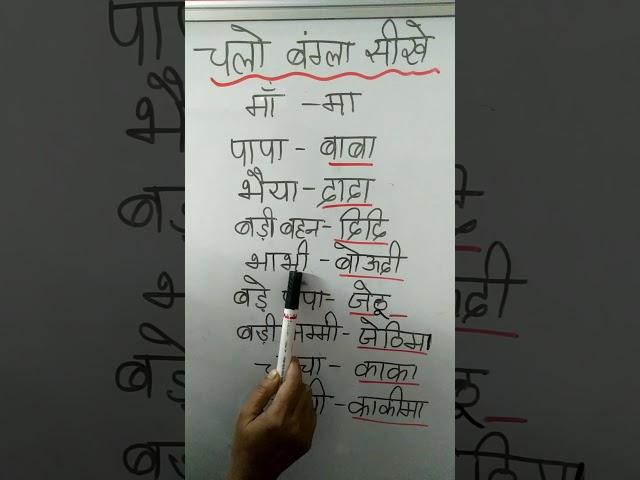 चलो बंग्ला सीखे
माँ - मा
पापा - बाबा
भैया - दादा
बड़ी बहन - दिदि
भाभी - बोऊदी
बड़े - जेठू
बड़ी मम्मी - जेठिमा
काका
काकीमा